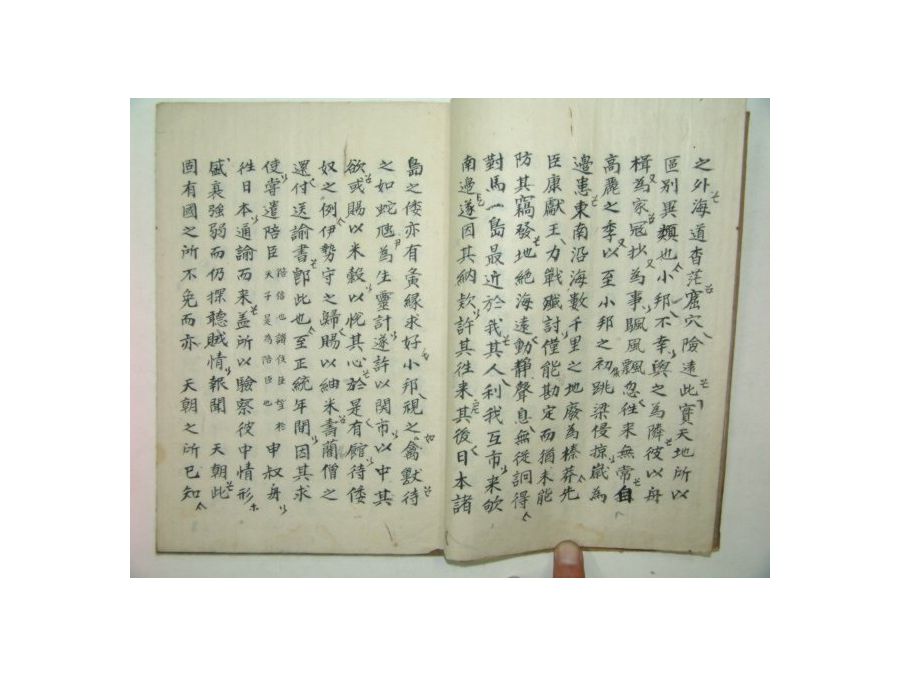 之外海道杳茫窟穴險遠此實天地所以
區別異類也小邦不幸與之為隣彼以舟
楫為家寇抄為事颿風飄忽徃来無常自
高麗之季以至小邦之初跳梁侵掠歲為
邊患東南沿海數千里之地廢為榛莽先
臣康獻王力戰殲討僅能勘定而猶未能
防其竊發地絕海遠動靜聲息無從詗得
對馬一島最近於我其人利我互市来欵
南邊遂因其納欵許其徃来其後日本諸
島之倭亦有夤緣求好小邦視之禽獸待
之如蛇虺為生靈計遂許以関市以中其
欲或賜以米穀以恱其心於是有館待倭
奴之例伊勢守之歸賜以紬米書藺僧之
還付送諭書即此也至正統年間因其求
使甞遣陪臣 陪信也諸侯臣望於天子是為陪臣也 申叔舟
徃日本通諭而来盖所以驗察彼中情形
盛衰強弱而仍探聽賊情報聞 天朝此
固有國之所不免而亦 天朝之所已知